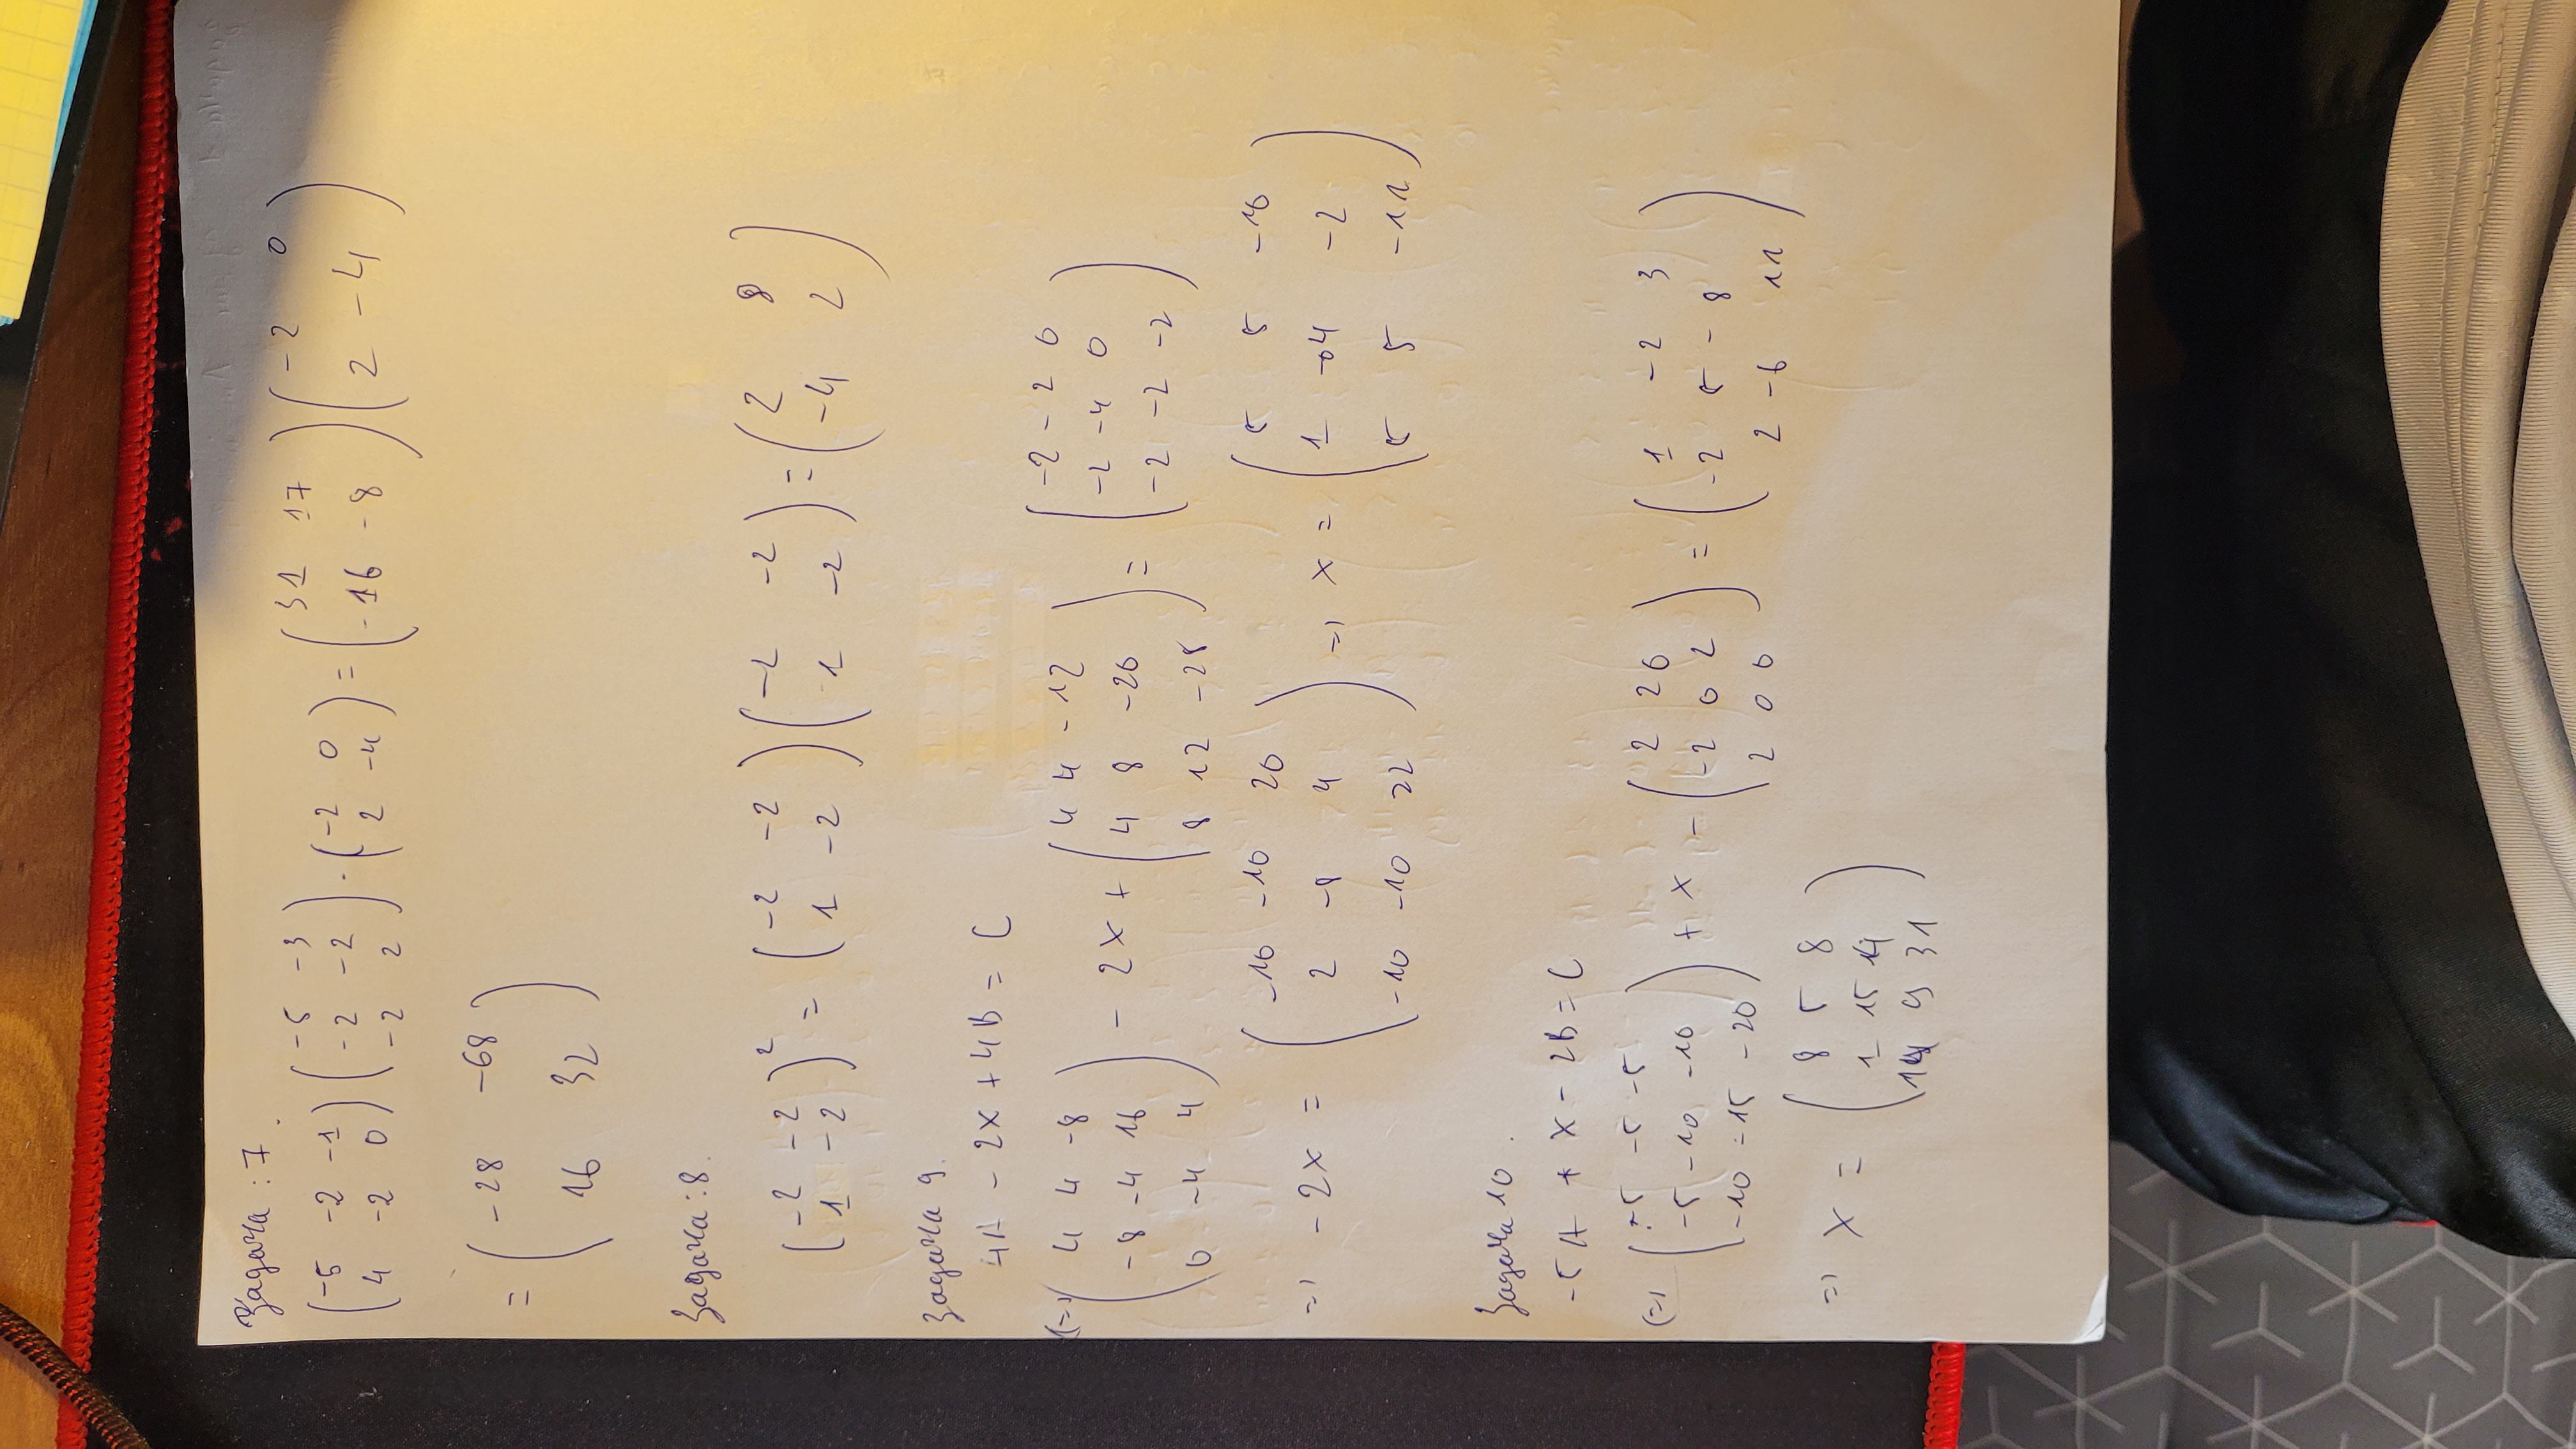 Задача : 7.
(-5 -2 -1 / 4 -2 0) (-5 -3 / -2 -2 / -2 2) · (-2 0 / 2 -4) = (31 17 / -16 -8) (-2 0 / 2 -4)
= (-28 -68 / 16 32)
Задача : 8.
(-2 -2 / 1 -2)² = (-2 -2 / 1 -2) (-2 -2 / 1 -2) = (2 8 / -4 2)
Задача 9.
4A - 2x + 4B = C
(=) (4 4 -8 / -8 -4 16 / 0 -4 4) - 2x + (4 4 -12 / 4 8 -20 / 8 12 -28) = (-2 -2 0 / -2 -4 0 / -2 -2 -2)
=) -2x = (-10 -10 20 / 2 -8 4 / -10 -10 22) =) x = (5 5 -10 / 1 -4 -2 / 5 5 -11)
Задача 10.
-5A + x - 2B = C
(=) (-5 -5 -5 / -5 -10 -10 / -10 -15 -20) + x - (2 2 0 / -2 0 2 / 2 0 0) = (1 -2 3 / -2 5 -8 / 2 -6 11)
=) x = (8 5 8 / 1 15 14 / 14 9 31)